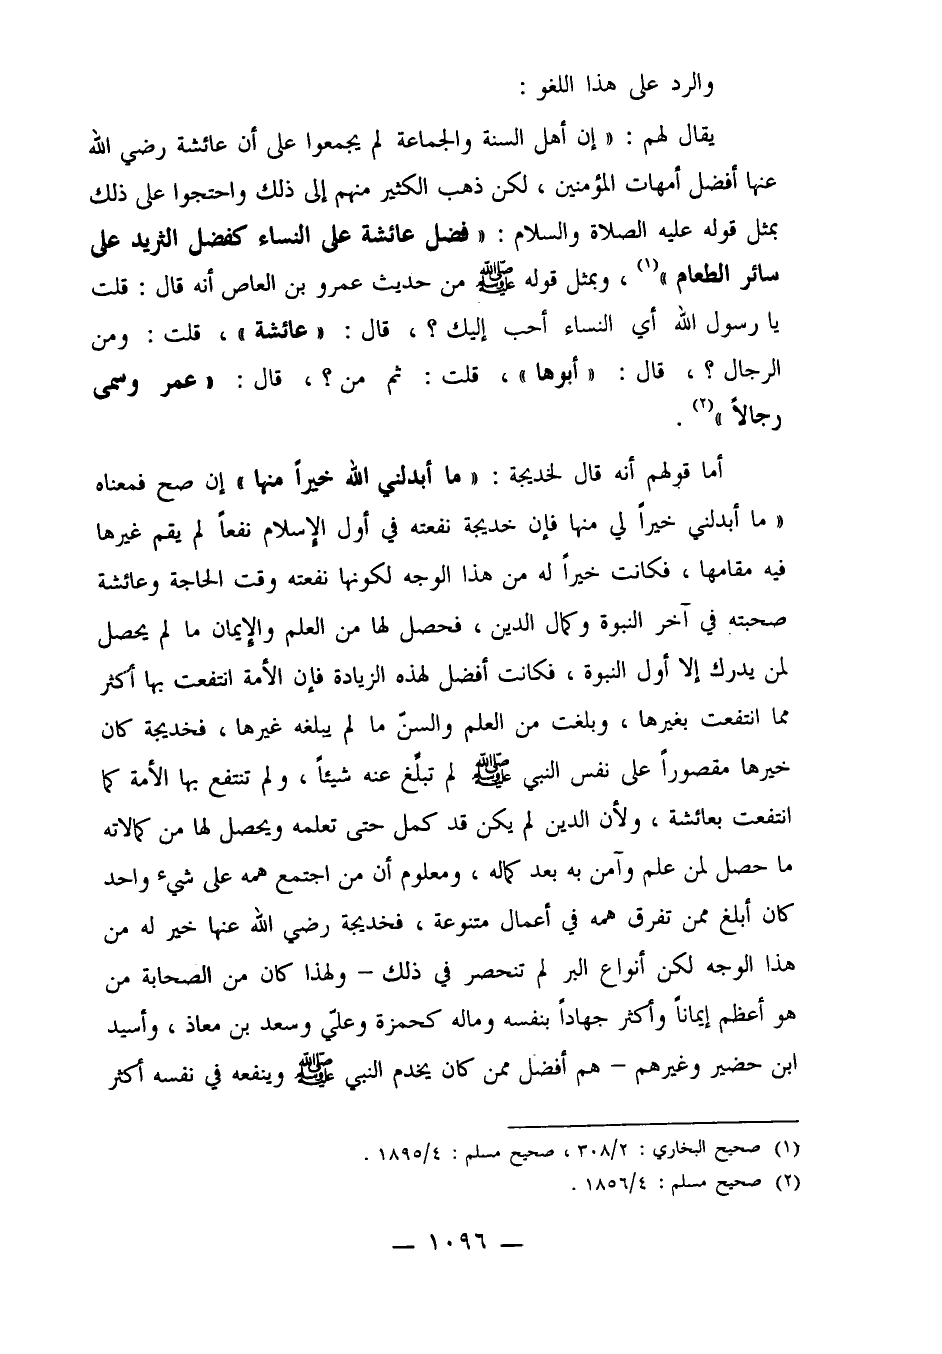 والرد على هذا اللغو :
يقال لهم : « إن أهل السنة والجماعة لم يجمعوا على أن عائشة رضي الله
عنها أفضل أمهات المؤمنين ، لكن ذهب الكثير منهم إلى ذلك واحتجوا على ذلك
بمثل قوله عليه الصلاة والسلام : « فضل عائشة على النساء كفضل الثريد على
سائر الطعام »(١) ، وبمثل قوله ﷺ من حديث عمرو بن العاص أنه قال : قلت
يا رسول الله أي النساء أحب إليك ؟ ، قال : « عائشة » ، قلت : ومن
الرجال ؟ ، قال : « أبوها » ، قلت : ثم من ؟ ، قال : « عمر وسمى
رجالاً »(٢) .
أما قولهم أنه قال لخديجة : « ما أبدلني الله خيراً منها » إن صح فمعناه
« ما أبدلني خيراً لي منها فإن خديجة نفعته في أول الإسلام نفعاً لم يقم غيرها
فيه مقامها ، فكانت خيراً له من هذا الوجه لكونها نفعته وقت الحاجة وعائشة
صحبته في آخر النبوة وكمال الدين ، فحصل لها من العلم والإيمان ما لم يحصل
لمن يدرك إلا أول النبوة ، فكانت أفضل لهذه الزيادة فإن الأمة انتفعت بها أكثر
مما انتفعت بغيرها ، وبلغت من العلم والسنّ ما لم يبلغه غيرها ، فخديجة كان
خيرها مقصوراً على نفس النبي ﷺ لم تبلَّغ عنه شيئاً ، ولم تنتفع بها الأمة كما
انتفعت بعائشة ، ولأن الدين لم يكن قد كمل حتى تعلمه ويحصل لها من كمالاته
ما حصل لمن علم وآمن به بعد كماله ، ومعلوم أن من اجتمع همه على شيء واحد
كان أبلغ ممن تفرق همه في أعمال متنوعة ، فخديجة رضي الله عنها خير له من
هذا الوجه لكن أنواع البر لم تنحصر في ذلك – ولهذا كان من الصحابة من
هو أعظم إيماناً وأكثر جهاداً بنفسه وماله كحمزة وعليّ وسعد بن معاذ ، وأسيد
ابن حضير وغيرهم – هم أفضل ممن كان يخدم النبي ﷺ وينفعه في نفسه أكثر
(١) صحيح البخاري : ٣٠٨/٢ ، صحيح مسلم : ١٨٩٥/٤ .
(٢) صحيح مسلم : ١٨٥٦/٤ .
— ١٠٩٦ —